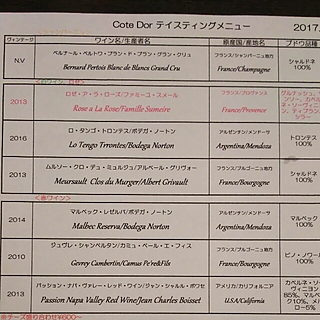 Cote Dor テイスティングメニュー 2017.
ヴィンテージ ワイン名/生産者名 原産国/産地名 ブドウ品種
ベルナール・ペルトワ・ブラン・ド・ブラン・グラン・クリュ フランス/シャンパーニュ地方
N.V シャルドネ
Bernard Pertois Blanc de Blancs Grand Cru France/Champagne 100%
ロゼ・ア・ラ・ローズ/ファミーユ・スメール フランス/プロヴァンス
2013
Rose a La Rose/Famille Sumeire France/Provence
ロ・タンゴ・トロンテス/ボデガ・ノートン アルゼンチン/メンドーサ
2016 トロンテス
Lo Tengo Trrontes/Bodega Norton Argentina/Mendoza 100%
ムルソー・クロ・デュ・ミュルジェ/アルベール・グリヴォー フランス/ブルゴーニュ地方
2013 シャルドネ
Meursault Clos du Murger/Albert Grivault France/Bourgogne 100%
<赤ワイン>
マルベック・レゼルバ/ボデガ・ノートン アルゼンチン/メンドーサ
2014 マルベック
Malbec Reserva/Bodega Norton Argentina/Mendoza 100%
ジュヴレ・シャンベルタン/カミュ・ペール・エ・フィス フランス/ブルゴーニュ地方
2010 ピノ・ノワール
Gevrey Cambertin/Camus Pe're&Fils France/Bourgogne 100%
パッション・ナパ・ヴァレー・レッド・ワイン/ジャン・シャルル・ボワセ アメリカ/カリフォルニア
2013
Passion Napa Valley Red Wine/Jean Charles Boisset USA/California
※チーズ盛り合わせ¥600~